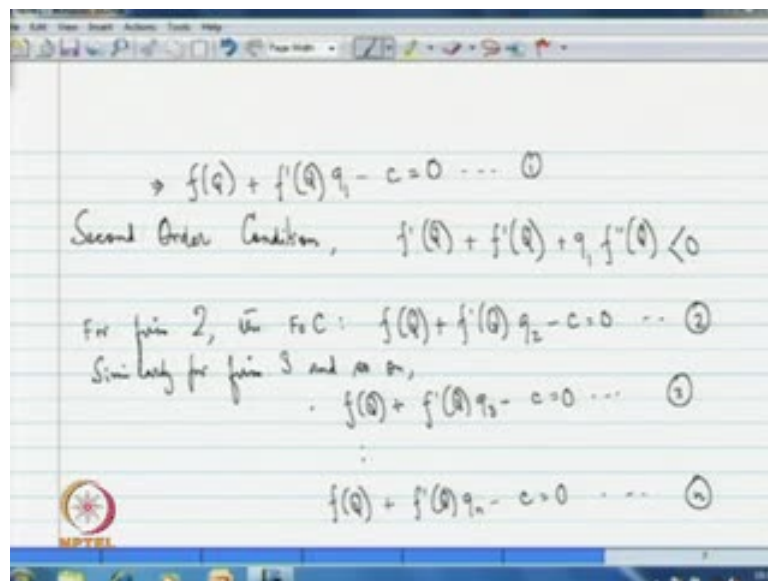 Edit View Insert Actions Tools Help
Page Width
⇒ f(Q) + f'(Q) q₁ - c = 0 --- ①
Second Order Condition, f'(Q) + f'(Q) + q₁ f''(Q) < 0
For firm 2, the FOC : f(Q) + f'(Q) q₂ - c = 0 -- ②
Similarly for firm 3 and so on,
f(Q) + f'(Q) q₃ - c = 0 --- ③
:
f(Q) + f'(Q) qₙ - c = 0 ---- ⓝ
NPTEL